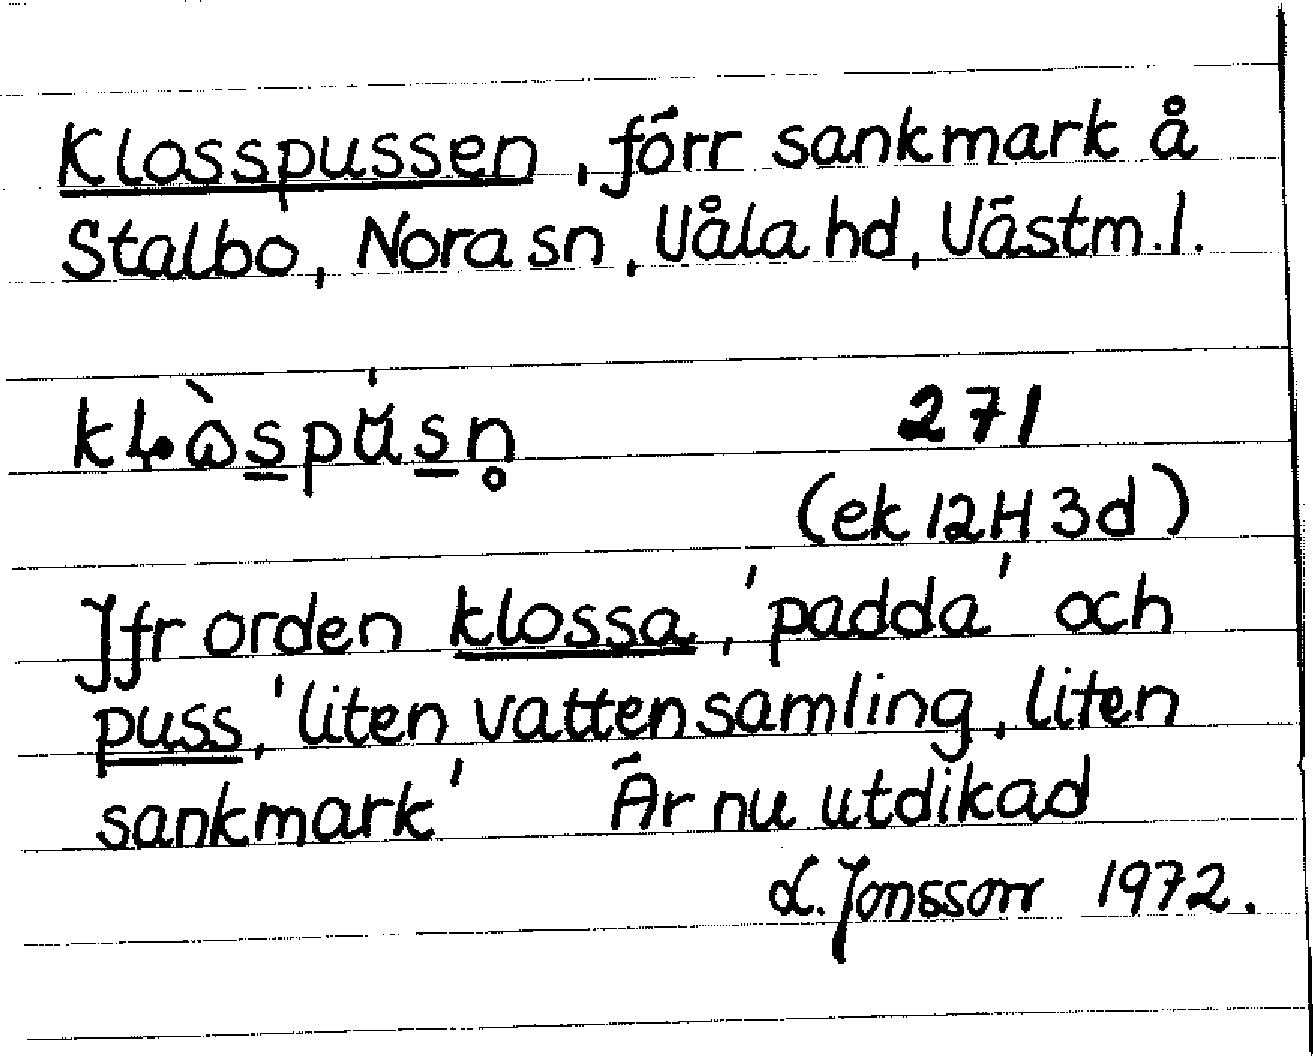 Klosspussen, förr sankmark å
Stalbo, Nora sn, Våla hd, Västm. l.
271
(ek 12H 3d)
Jfr orden klossa, 'padda' och
puss, 'liten vattensamling, liten
sankmark' Är nu utdikad
L. Jonsson 1972.